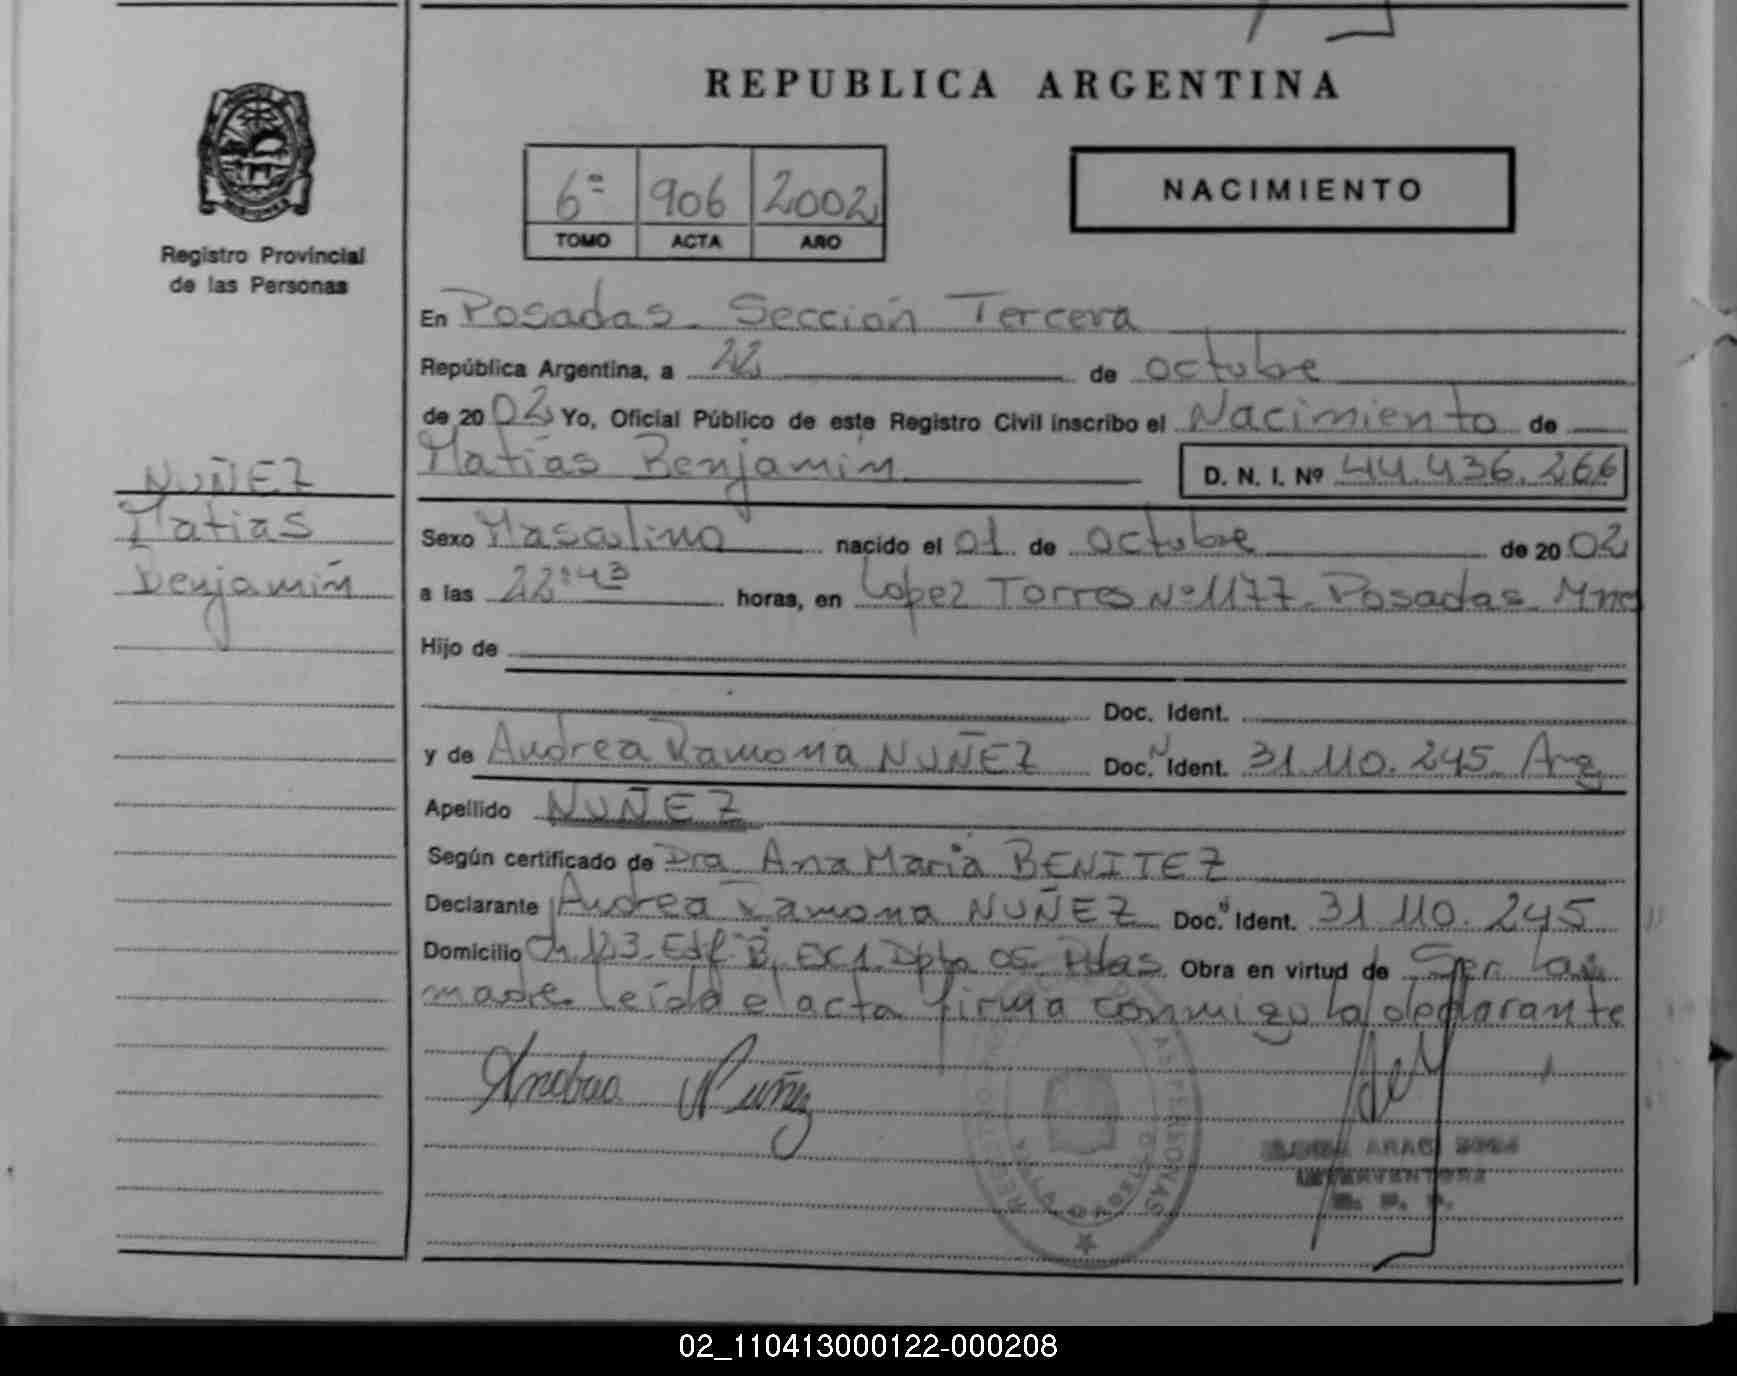 REPUBLICA ARGENTINA
6ª 906 2002
TOMO ACTA AÑO
NACIMIENTO
Registro Provincial
de las Personas
En Posadas. Sección Tercera
República Argentina, a 22 de octubre
de 2002 Yo, Oficial Público de este Registro Civil inscribo el Nacimiento de
Matías Benjamín D. N. I. Nº 44.436.266
NUÑEZ
Matías
Benjamín
Sexo Masculino nacido el 01 de octubre de 2002
a las 22:43 horas, en Lopez Torres Nº 1177. Posadas. Mnes
Hijo de
Doc. Ident.
y de Andrea Ramona NUÑEZ Doc. Ident. 31.110.245 Arg
Apellido NUÑEZ
Según certificado de Dra. Ana Maria BENITEZ
Declarante Andrea Ramona NUÑEZ Doc. Ident. 31.110.245
Domicilio Ch. 123. Edf. B. ESC 1. Dpto 05. Pdas. Obra en virtud de Ser la
madre. leída el acta firma conmigo la declarante
Nuñez
INTERVENTORA
02_110413000122-000208